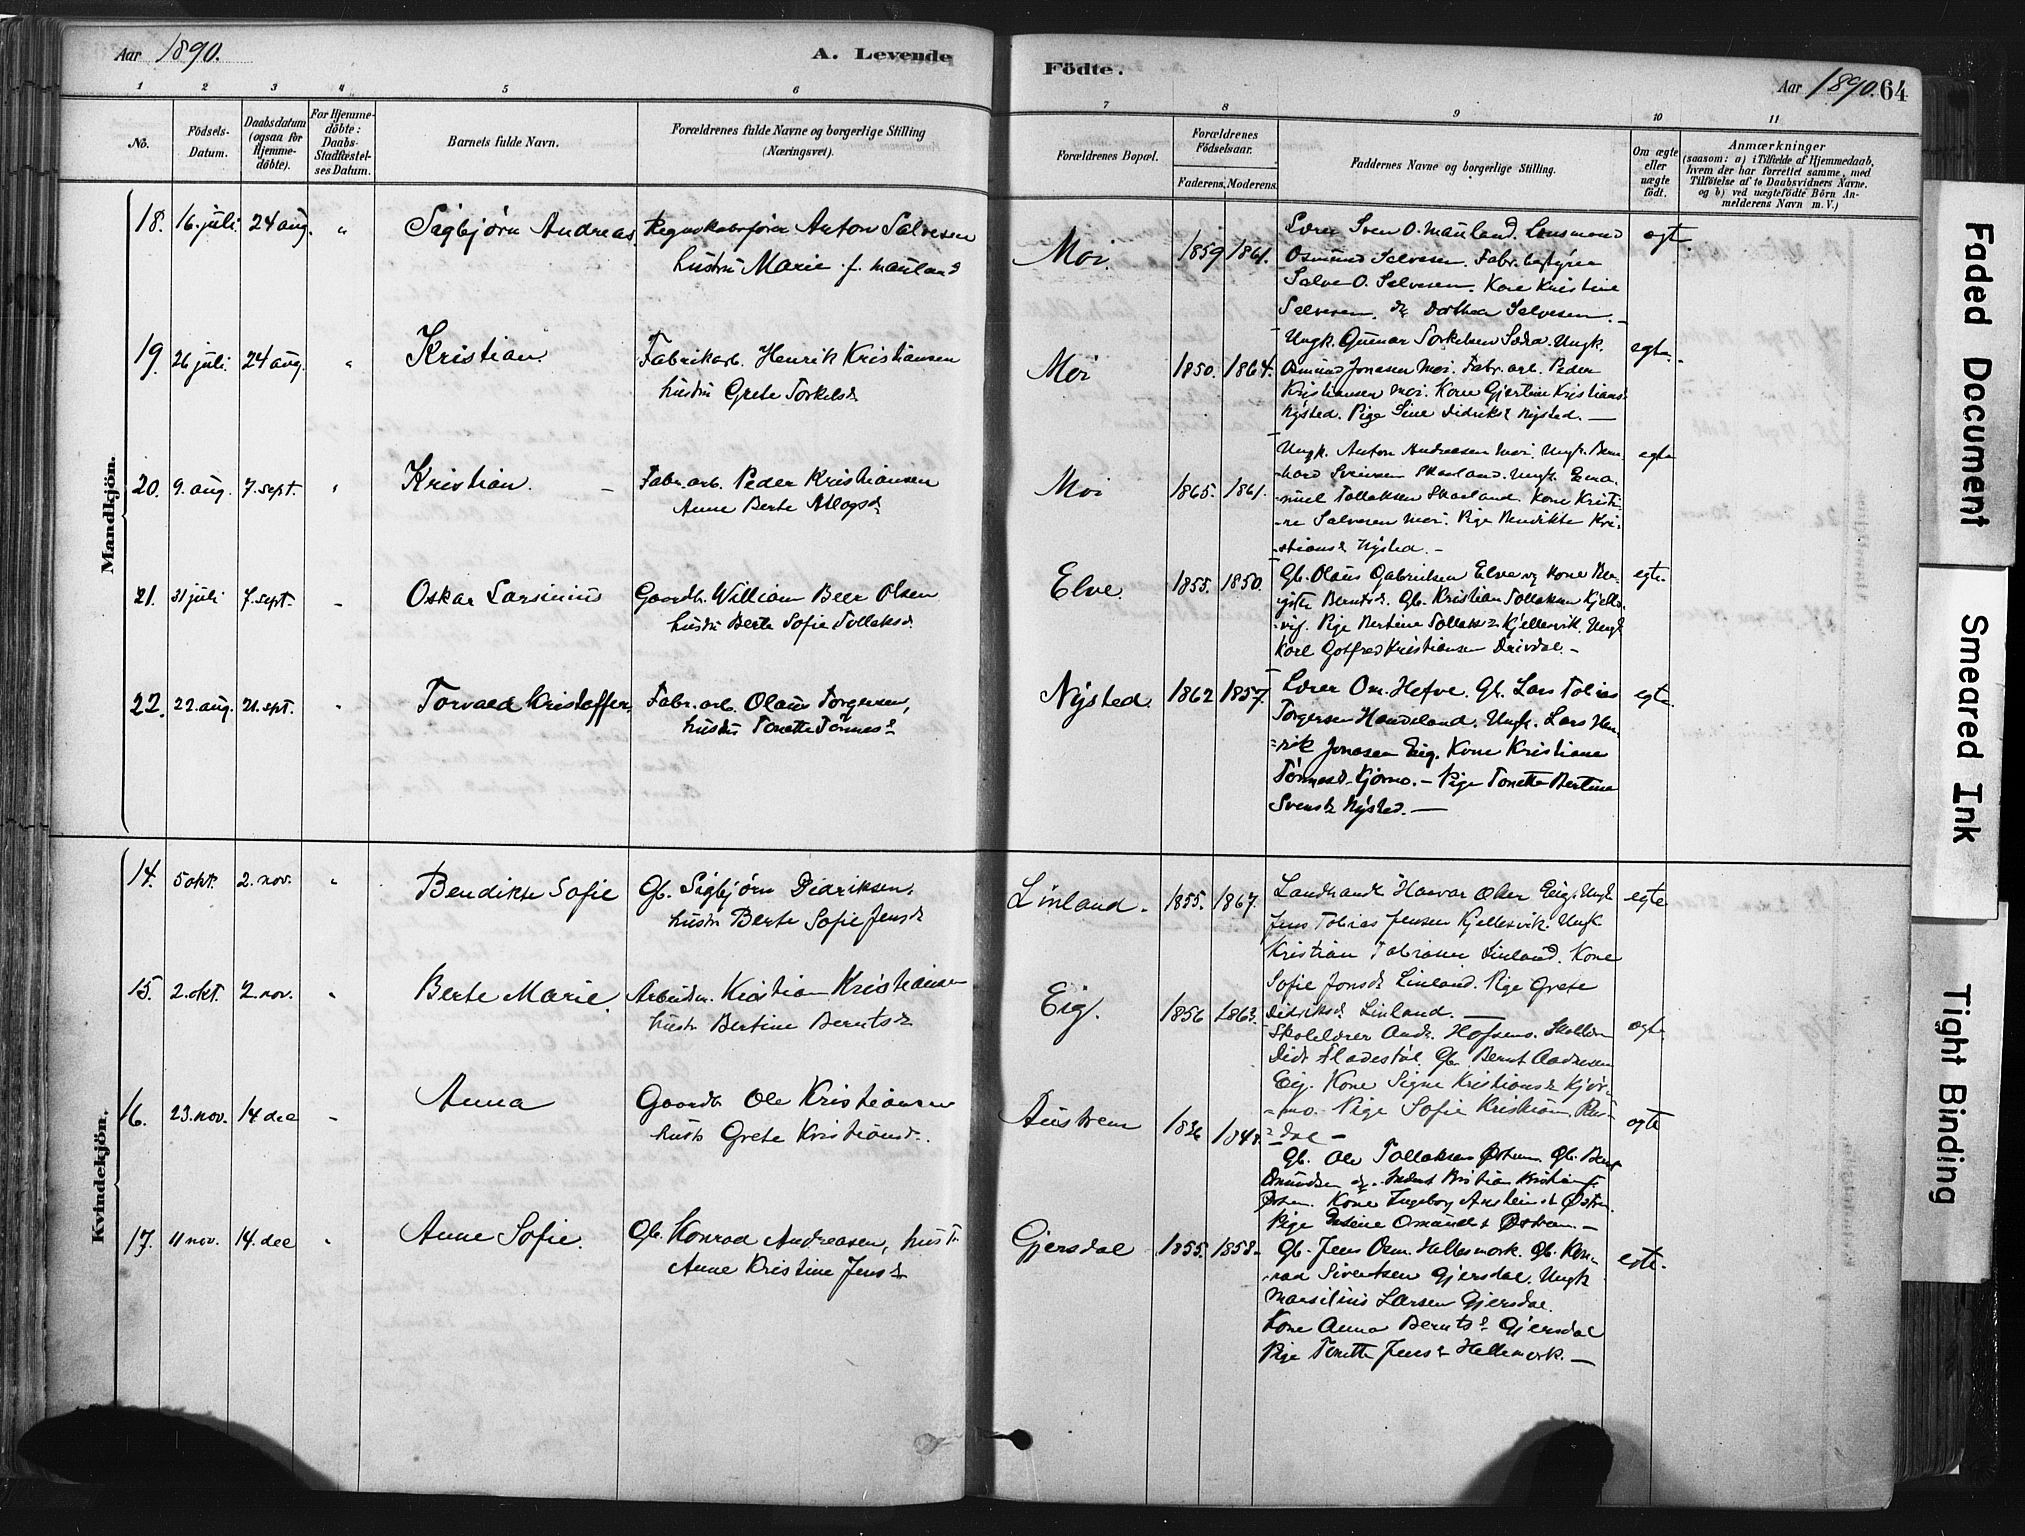 Aar 1890.
A. Levende
Födte.
Aar 1890. 64
1 2 3 4 5 6
7 8 9 10 11
No.
Födsels-Datum.
Daabsdatum (ogsaa for Hjemme-döbte).
For Hjemme-döbte: Daabs-Stadfæstel-ses Datum.
Barnets fulde Navn.
Forældrenes fulde Navne og borgerlige Stilling (Næringsvei).
Forældrenes Bopæl.
Forældrenes Födselsaar.
Faderens. Moderens.
Faddernes Navne og borgerlige Stilling.
Om ægte eller uægte födt.
Anmærkninger
(saasom: a) i Tilfælde af Hjemmedaab,
hvem der har forrettet samme, med
Tilföielse af to Daabsvidners Navne.
og b) ved uægtefödte Börn An-
melderens Navn m. V.)
Mandkjön.
18. 16. juli 24 aug. " Sigbjørn Andreas. Regnskabsfører Anton Salvesen
hustru Marie f. Mauland
Moi. 1859 1861. Lærer Sven O. Mauland. Lensmand
Osmund Salvesen. Fabr. bestyrer
Salve O. Salvesen. Kone Kristine
Salvesen. Dorthea Salvesen.
egte
19. 26 juli 24 aug. " Kristian. Fabrikarb. Henrik Kristiansen
hustru Grete Torkelsd
Moi 1850. 1864. Ungk. Gunar Torkelsen. Ungk.
Osmund Jonasen Moi. Fabr. arb. Peder
Kristiansen Moi. Kone Gjertine Kristiansd
Nysted. Pige Sine Didriksd Nysted.
egte.
20. 9. aug. 7. sept. " Kristian. Fabr. arb. Peder Kristiansen
Anne Berte Atlagsd
Moi 1865. 1861. Ungk. Anton Andreasen Moi. Ungk. Bern-
hard Sveinsen Skarland. Ungk. Ema-
nuel Tollaksen Skarland. Kone Kristi-
ne Salvesen Moi. Pige Bendikte Kri-
stiansd Nysted.
egte
21. 31 juli 7. sept. " Oskar Larsinius Gaardb. William Beer Olsen
hustru Berte Sofie Tollaksd.
Elve. 1855. 1850. Gb. Olaus Gabrielsen Elve og Kone
Berntsd. Gb. Kristian Tollaksen Kjelles-
vig. Pige Bertine Tollaksd Kjellesvik. Ungk
Karl Gotfred Kristiansen Drivdal.
egte.
22. 22. aug. 21. sept. " Torvald Kristoffer. Fabr. arb. Olaus Torgersen,
hustru Tonette Tönnesd
Nysted. 1862 1857. Lærer Om. Hefve. Gb. Lars Tobias
Torgersen Handeland. Ungk. Lars Hen-
rik Jonasen Eig. Kone Kristiane
Tönnesd. Kjørmo. Pige Tonette Bertine
Svensd. Nysted.
egte.
Kvindekjön.
14. 5 okt. 2. nov. " Bendikte Sofie Gb. Sigbjørn Didriksen,
hustru Berte Sofie Jensd
Linland. 1855. 1867. Landhandl. Haavar Olsen Eeig. Ungk
Jens Tobias Jensen Kjellesvik. Ungk
Kristian Tobiasen Linland. Kone
Sofie Jonsd Linland. Pige Grete
Didriksd Linland.
egte
15. 2. okt. 2. nov. " Berte Marie. Arbeider. Kristian Kristiansen
hustr Bertine Berntsd
Eig. 1856 1863. Skolelærer Andr. Hofsmo. Skolelærer
Didr Fladestöl. Gb. Bernt Aadnesen
Eig. Kone Signe Kristiansd Kjør-
mo. Pige Sofie Kristians Rus-
dal
egte.
16. 23. nov. 14 dec " Anna Gaardb Ole Kristiansen
hustr Grete Kristiansd.
Austrem 1836 184 Gb. Ole Tollaksen Østrem. Gb. Bernt
Omundsen og Kristian Kristians
Østrem. Kone Ingeborg Østrem.
Pige Omundsd Østrem.
egte
17. 11 nov. 14. dec " Anne Sofie. Gb. Konrad Andreasen, hustr.
Anne Kristine Jensd
Gjersdal 1855. 1858. Gb. Jens Osm. Hellesmork. Gb. Kon-
rad Sivertsen Gjersdal. Ungk
Marsilius Larsen Gjersdal.
Kone Anna Berntsd Gjersdal
Pige Tonette Jensd Hellesmork.
egte.
Faded Document
Smeared Ink
Tight Binding